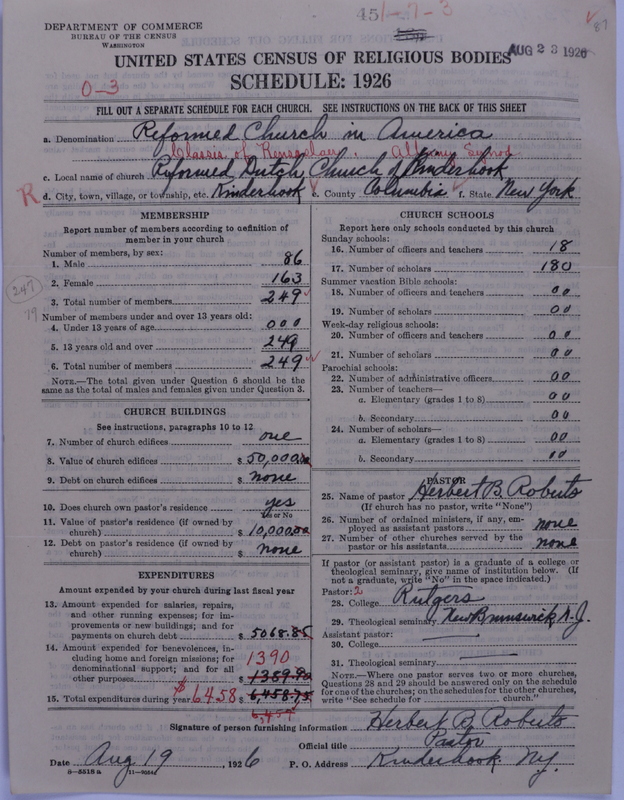 DEPARTMENT OF COMMERCE
BUREAU OF THE CENSUS
WASHINGTON
451-7-3
87
AUG 23 1926
UNITED STATES CENSUS OF RELIGIOUS BODIES
SCHEDULE: 1926
0-3
FILL OUT A SEPARATE SCHEDULE FOR EACH CHURCH. SEE INSTRUCTIONS ON THE BACK OF THIS SHEET
a. Denomination Reformed Church in America
Classis of Rensselaer, Albany Synod.
c. Local name of church Reformed Dutch Church of Kinderhook
R d. City, town, village, or township, etc. Kinderhook e. County Columbia f. State New York
MEMBERSHIP
Report number of members according to definition of
member in your church
Number of members, by sex:
1. Male 86
2. Female 163
3. Total number of members 249
Number of members under and over 13 years old:
4. Under 13 years of age 000
5. 13 years old and over 249
6. Total number of members 249
NOTE.—The total given under Question 6 should be the
same as the total of males and females given under Question 3.
CHURCH BUILDINGS
See instructions, paragraphs 10 to 12
7. Number of church edifices one
8. Value of church edifices $ 50,000.00
9. Debt on church edifices $ none
10. Does church own pastor's residence yes
Yes or No
11. Value of pastor's residence (if owned by
church) $ 10,000.00
12. Debt on pastor's residence (if owned by
church) $ none
EXPENDITURES
Amount expended by your church during last fiscal year
13. Amount expended for salaries, repairs,
and other running expenses; for im-
provements or new buildings; and for
payments on church debt $ 5068.85
14. Amount expended for benevolences, in-
cluding home and foreign missions; for
denominational support; and for all
other purposes $ 1389.90
1390
15. Total expenditures during year $ 6458 $ 6,458.75
6,459
CHURCH SCHOOLS
Report here only schools conducted by this church
Sunday schools:
16. Number of officers and teachers 18
17. Number of scholars 180
Summer vacation Bible schools:
18. Number of officers and teachers 00
19. Number of scholars 00
Week-day religious schools:
20. Number of officers and teachers 00
21. Number of scholars 00
Parochial schools:
22. Number of administrative officers 00
23. Number of teachers—
a. Elementary (grades 1 to 8) 00
b. Secondary 00
24. Number of scholars—
a. Elementary (grades 1 to 8) 00
b. Secondary 00
PASTOR
25. Name of pastor Herbert B. Roberts
(If church has no pastor, write "None")
26. Number of ordained ministers, if any, em-
ployed as assistant pastors none
27. Number of other churches served by the
pastor or his assistants none
If pastor (or assistant pastor) is a graduate of a college or
theological seminary, give name of institution below. (If
not a graduate, write "No" in the space indicated.)
Pastor: 2
28. College Rutgers
29. Theological seminary New Brunswick N.J.
Assistant pastor:
30. College
31. Theological seminary
NOTE.—Where one pastor serves two or more churches,
Questions 28 and 29 should be answered only on the schedule
for one of the churches; on the schedules for the other churches,
write "See schedule for church."
Signature of person furnishing information Herbert B. Roberts
Official title Pastor
Date Aug 19, 1926 P. O. Address Kinderhook N.Y.